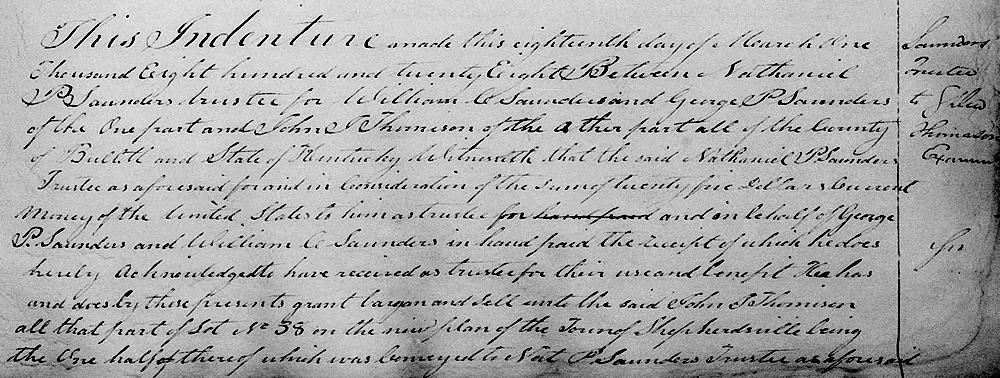 This Indenture made this eighteenth day of March One
Thousand Eeight hundred and twenty Eeight Between Nathaniel
P Saunders trustee for William C Saunders and George P Saunders
of the One part and John T Thomison of the Other part all of the County
of Bullitt and State of Kentucky Witnesseth that the said Nathaniel P Saunders
Trustee as aforesaid for and in Consideration of the Sum of twenty five Dollars Current
Money of the United States to him as trustee for hand paid and on behalf of George
P. Saunders and William C Saunders in hand paid the receipt of which he does
hereby Acknowledge to have received as trustee for their use and benefit Hea has
and does by these presents grant bargan and Sell unto the said John T Thomison
all that part of Lot No 38 on the new plan of the Town of Shepherdsville being
the One half of thereof which was conveyed to Nat P. Saunders Trustee as aforesaid
Saunders
Trustee
to
Thomason